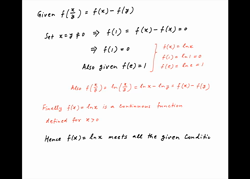 Given f(x/y) = f(x) - f(y)
Set x=y≠0 ⇒ f(1) = f(x) - f(x) = 0
⇒ f(1) = 0
Also given f(e) = 1
f(x) = ln x
f(1) = ln 1 = 0
f(e) = ln e = 1
Also f(x/y) = ln(x/y) = ln x - ln y = f(x) - f(y)
Finally f(x) = ln x is a continuous function
defined for x>0
Hence f(x) = ln x meets all the given Conditio